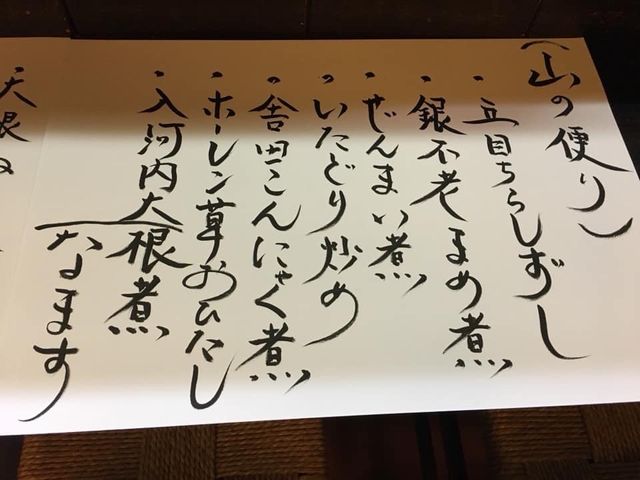 (山の便り)
・五目ちらしずし
・銀不老まめ煮
・ぜんまい煮
・いたどり炒め
・舎田こんにゃく煮
・ホーレン草おひたし
・入河内大根煮
なます
・大根